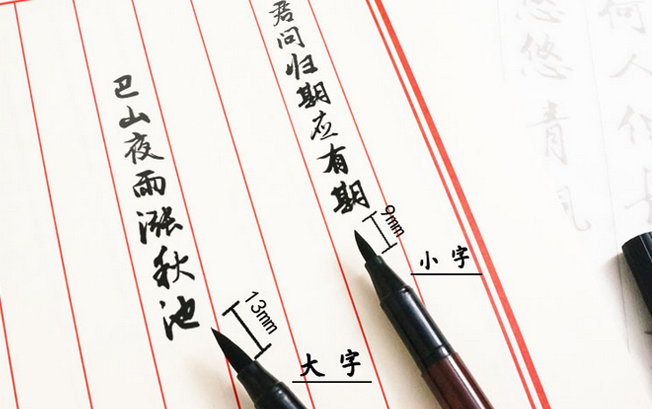 何人
悠悠青
君问归期应有期
巴山夜雨涨秋池
9mm
小字
13mm
大字